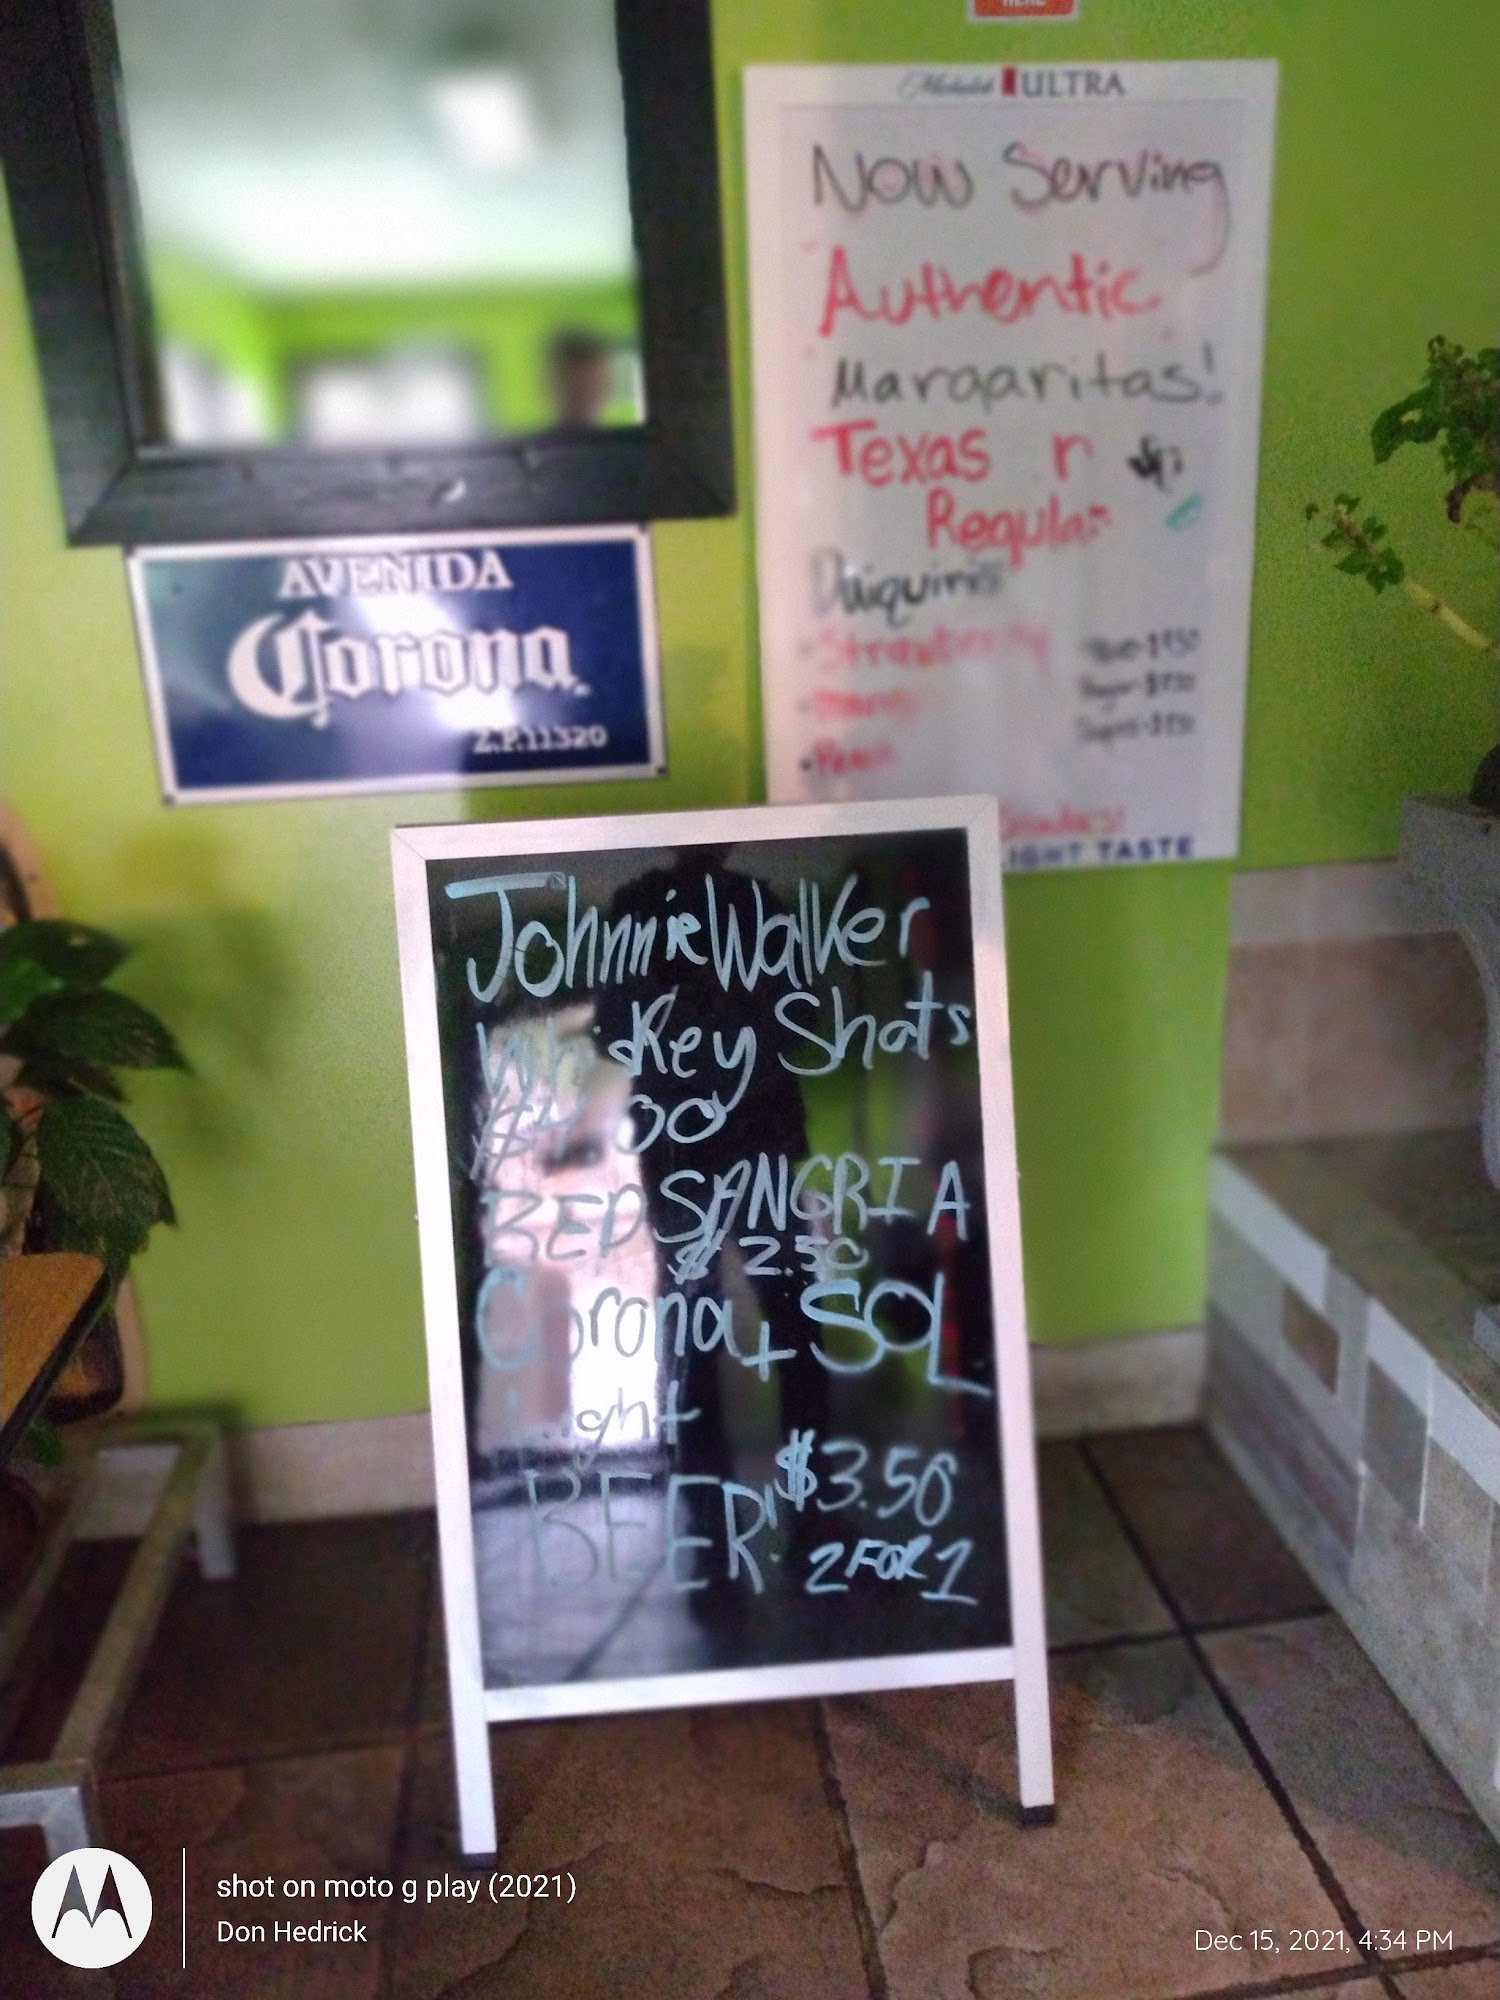 HERE
Michelob ULTRA
Now Serving
Authentic
Margaritas!
Texas r
Regular
Daiquiris
Strawberry
LIGHT TASTE
AVENIDA
Corona
Z.P.11320
Johnnie Walker
Whiskey Shots
$4 00
RED SANGRIA
$2.50
Corona + SOL
Light
BEER! $3.50
2 FOR 1
shot on moto g play (2021)
Don Hedrick
Dec 15, 2021, 4:34 PM